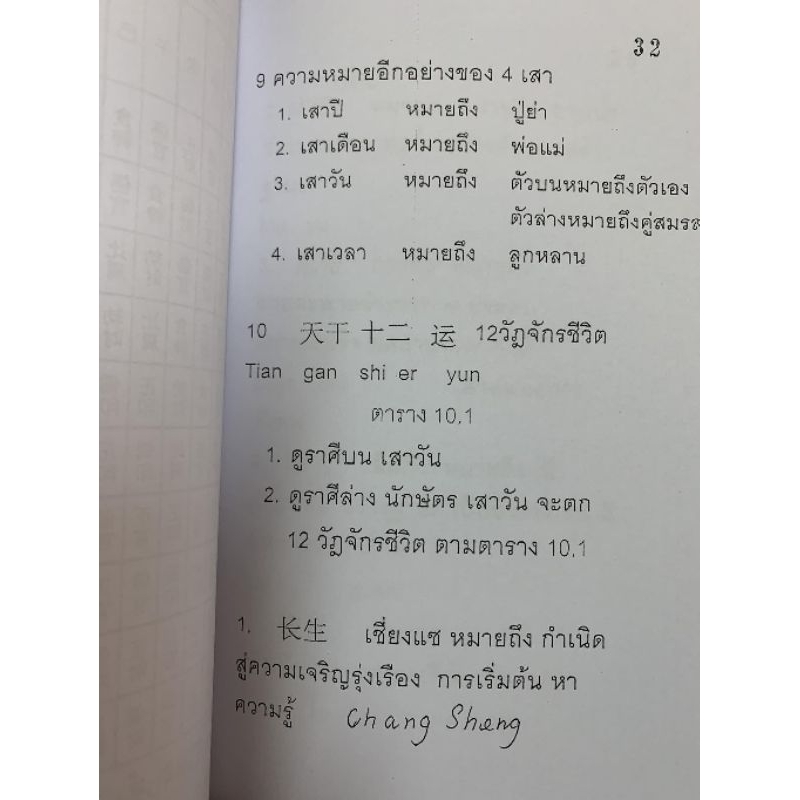 32
9 ความหมายอีกอย่างของ 4 เสา
1. เสาปี หมายถึง ปู่ย่า
2. เสาเดือน หมายถึง พ่อแม่
3. เสาวัน หมายถึง ตัวบนหมายถึงตัวเอง
ตัวล่างหมายถึงคู่สมรส
4. เสาเวลา หมายถึง ลูกหลาน
10 天干 十二 运 12วัฎจักรชีวิต
Tian gan shi er yun
ตาราง 10.1
1. ดูราศีบน เสาวัน
2. ดูราศีล่าง นักษัตร เสาวัน จะตก
12 วัฎจักรชีวิต ตามตาราง 10.1
1. 长生 เชี่ยงแซ หมายถึง กำเนิด
สู่ความเจริญรุ่งเรือง การเริ่มต้น หา
ความรู้ Chang Sheng